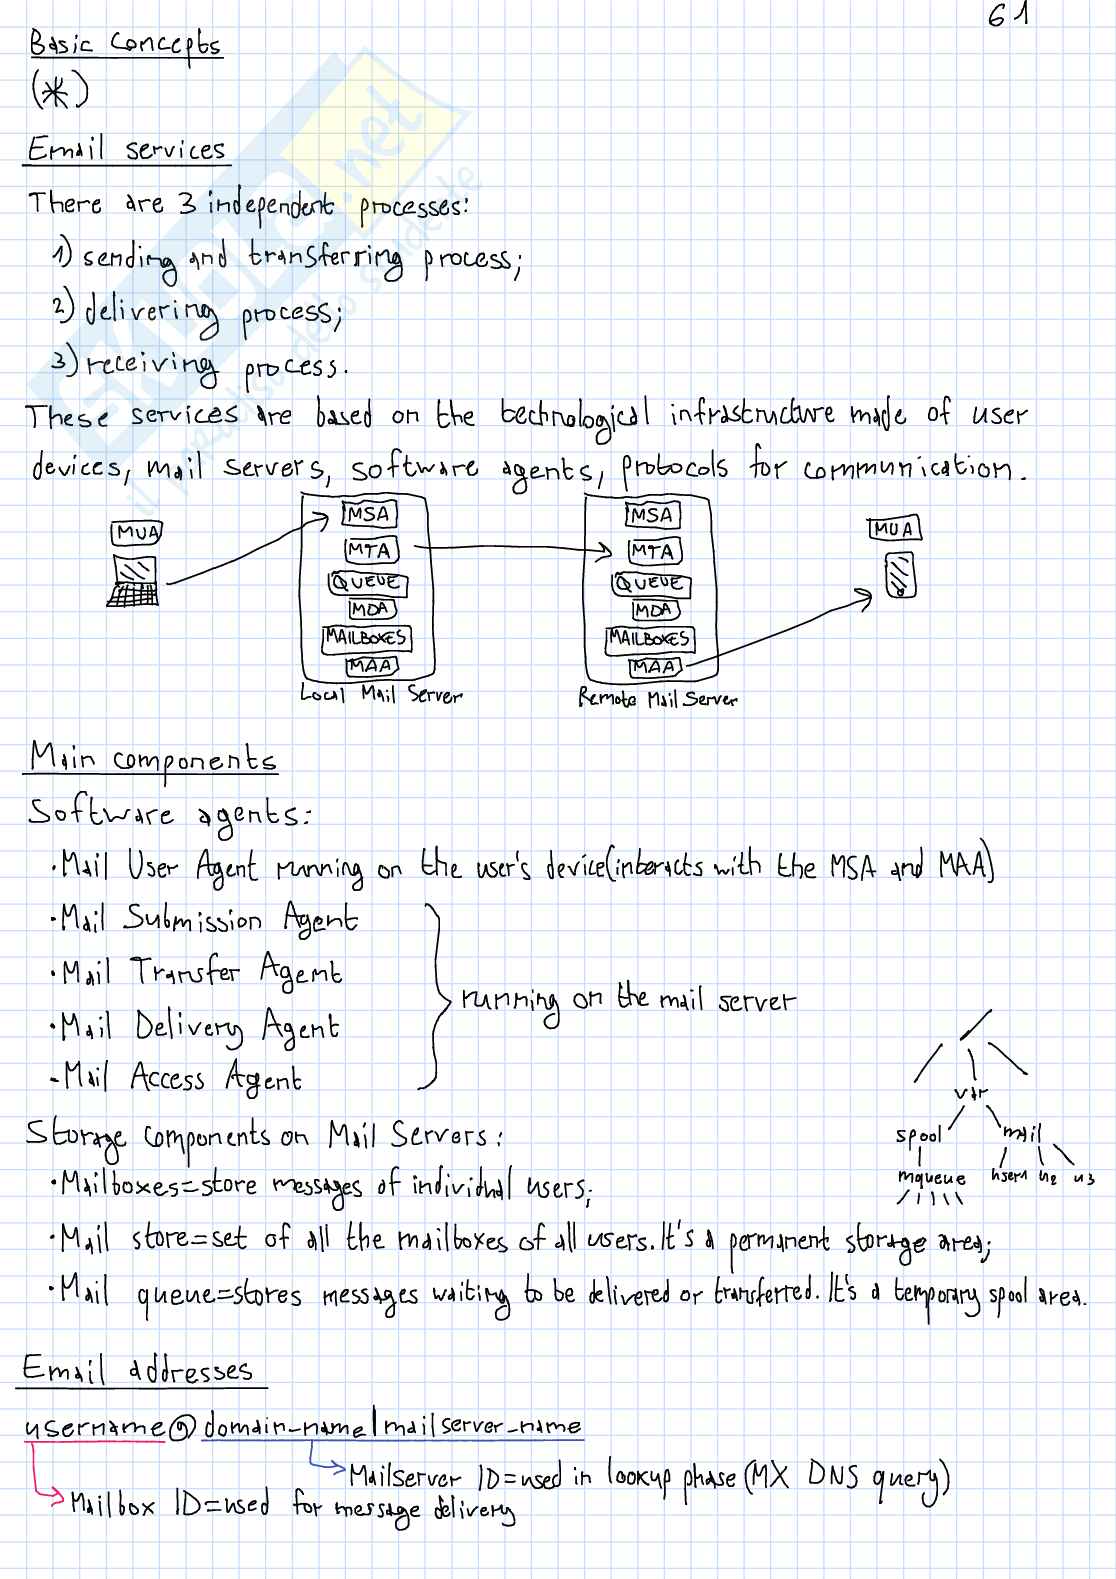 61
Basic concepts
(*)
Email services
There are 3 independent processes:
1) sending and transferring process;
2) delivering process;
3) receiving process.
These services are based on the technological infrastructure made of user
devices, mail servers, software agents, protocols for communication.
MUA
MSA
MTA
QUEUE
MDA
MAILBOXES
MAA
Local Mail Server
MSA
MTA
QUEUE
MDA
MAILBOXES
MAA
Remote Mail Server
MUA
Main components
Software agents:
·Mail User Agent running on the user's device(interacts with the MSA and MAA)
·Mail Submission Agent
·Mail Transfer Agent
·Mail Delivery Agent
-Mail Access Agent
running on the mail server
/
var
spool mail
mqueue user1 u2 u3
Storage components on Mail Servers:
·Mailboxes=store messages of individual users;
·Mail store=set of all the mailboxes of all users. It's a permanent storage area;
·Mail queue=stores messages waiting to be delivered or transferred. It's a temporary spool area.
Email addresses
username@domain_name|mailserver_name
Mailserver ID=used in lookup phase (MX DNS query)
Mailbox ID=used for message delivery
SKUOLA.net
il paradiso dello studente